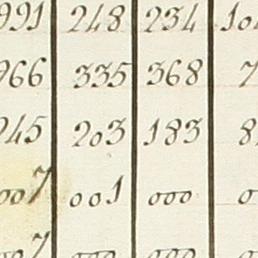 991 248 234 10
966 335 368 7
945 203 183 8
007 001 000 0
007 000 000